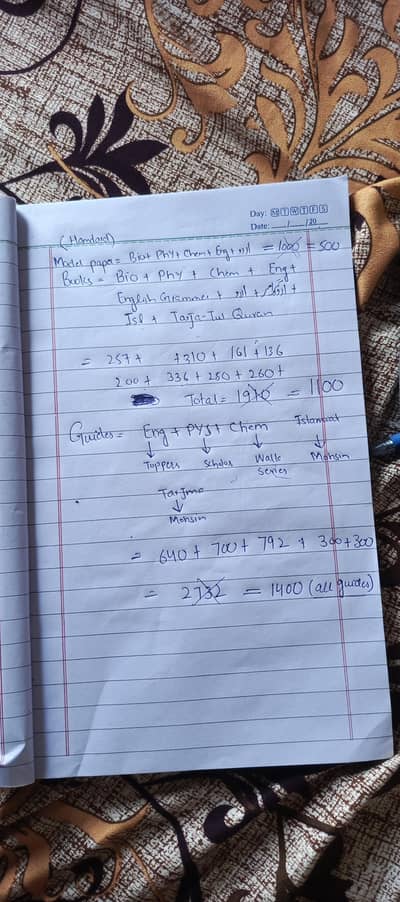 Day: M T W T F S S
Date: __/__/20__
(Hamdard)
Model papa = Bio + Phy + Chem + Eng + اردو = 1000 = 500
Books = Bio + Phy + Chem + Eng +
English Grammer + اردو +
Isl + Tarja-Tul Quran
= 257 + +310 + 161 + 136
200 + 336 + 250 + 260 +
Total = 1910 = 1100
Guides = Eng + PYS + Chem Islamiat
Toppers Scholar Walle Series Mohsin
Tarjma
Mohsin
= 640 + 700 + 792 + 300 + 300
= 2732 = 1400 (all guides)